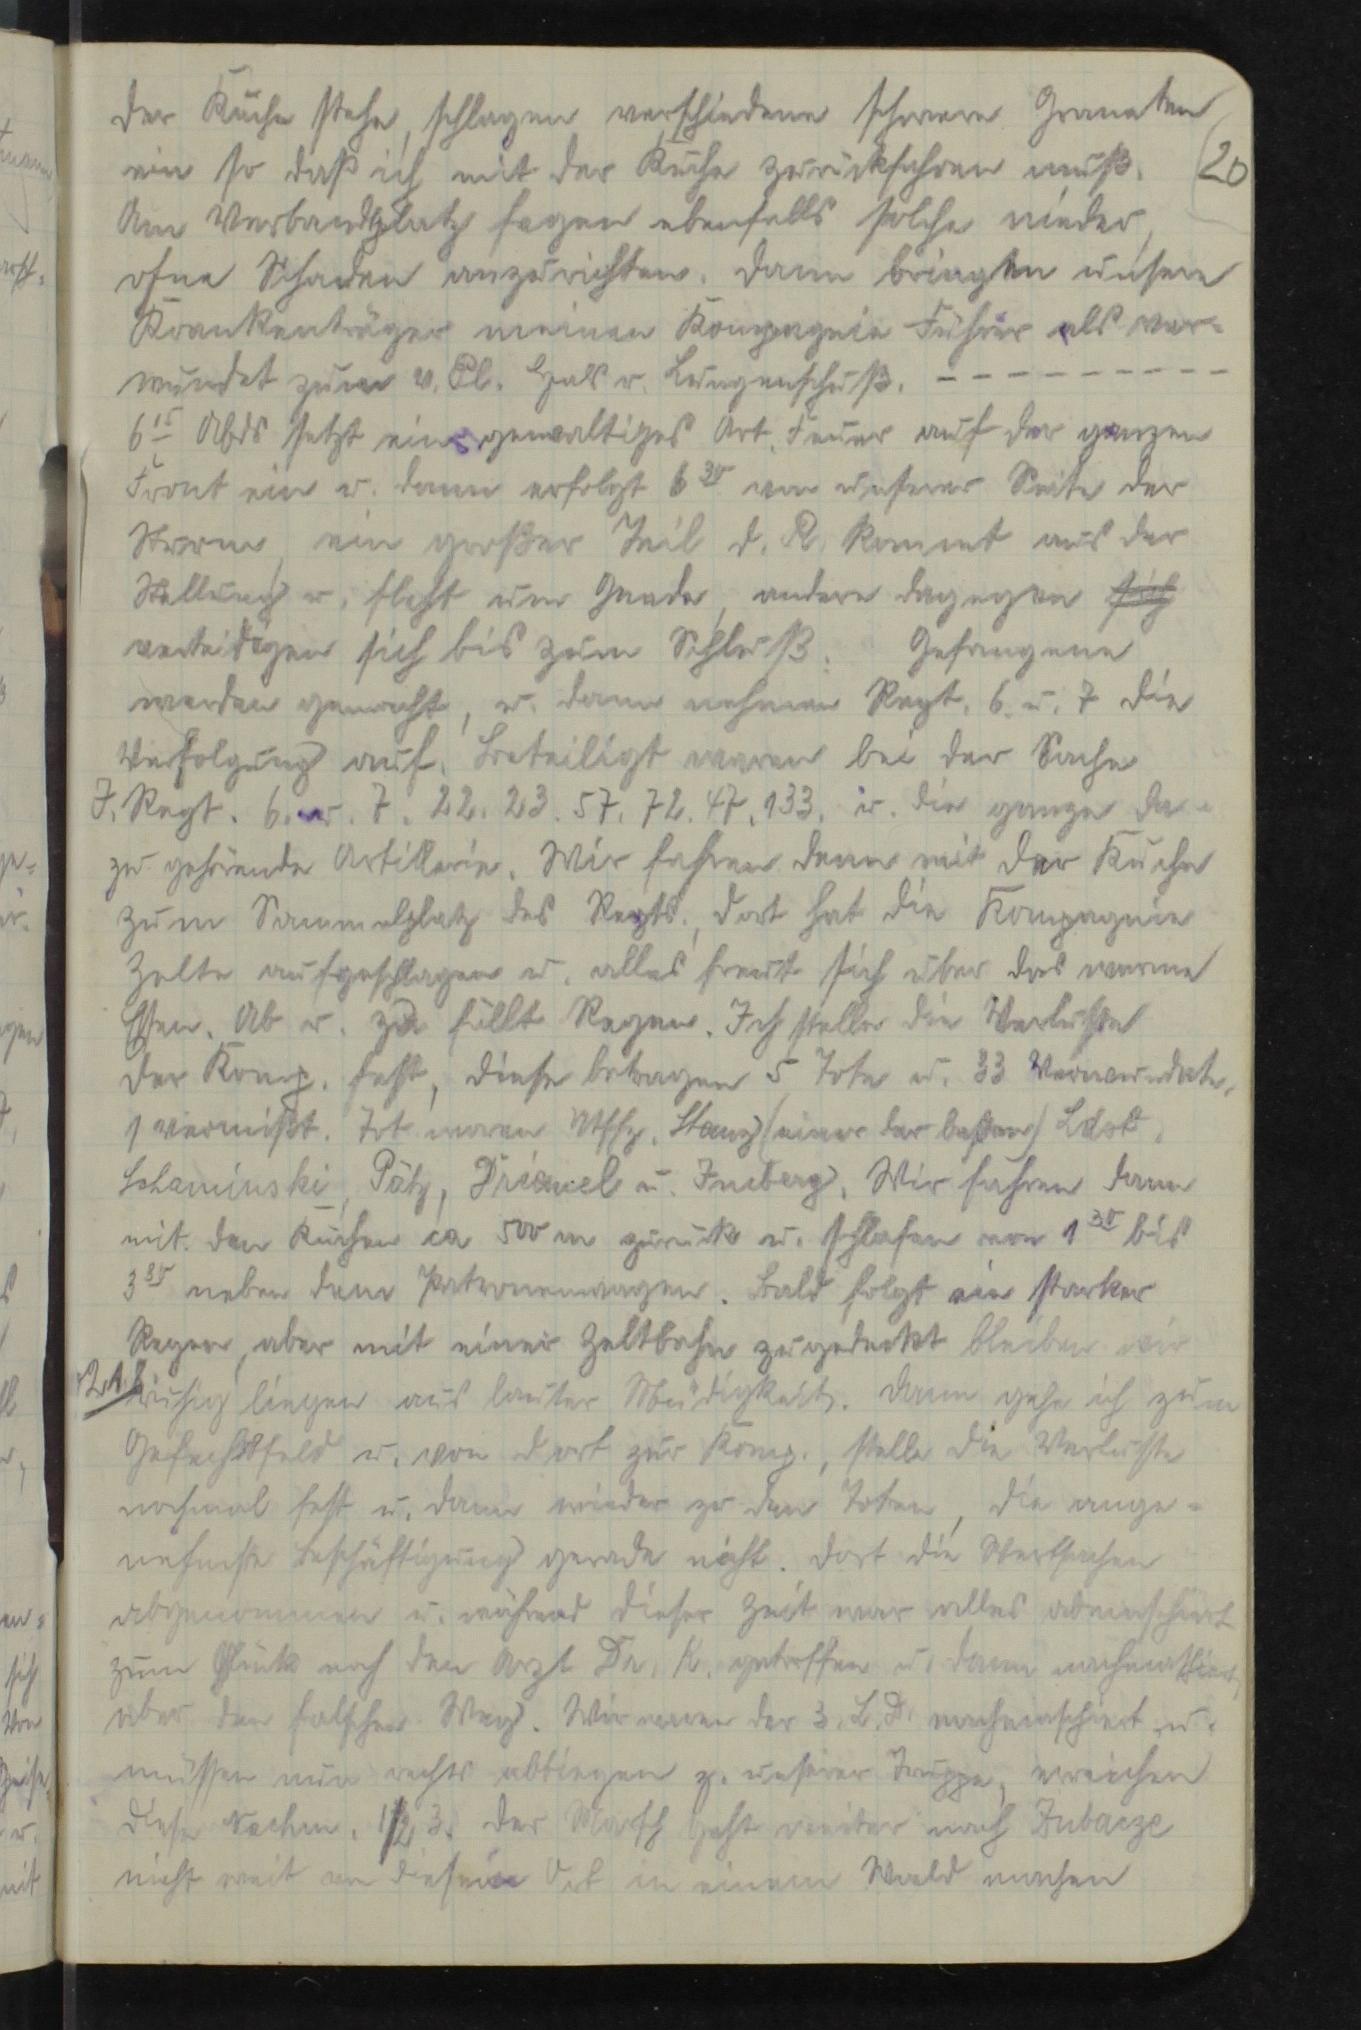 der Küche stehe, schlagen verschiedene schwere Granaten
ein so daß ich mit der Küche zurückfahren muß. (20
Am Verbandplatz fegen ebenfalls solche nieder,
ohne Schaden anzurichten. Dann bringen unsere
Krankenträger meinen Kompagnie Führer als ver-
wundet zum V. Pl. Hals u. Lungenschuß. - - - - - - - - -
6 15 Abds setzt ein gewaltiges Art. Feuer auf der ganzen
Front ein u. dann erfolgt 6 30 von unserer Seite der
Sturm, ein großer Teil d. R. kommt aus der
Stellung u. fleht um Gnade, andere dagegen sich
verteidigen sich bis zum Schluß. Gefangene
werden gemacht, u. dann nehmen Regt. 6. u. 7 die
Verfolgung auf. Beteiligt waren bei der Sache
J. Regt. 6. u. 7. 22. 23. 57. 72. 47. 133. u. die ganze da-
zu gehörende Artillerie. Wir fahren dann mit der Küche
zum Sammelplatz des Regts., dort hat die Kompagnie
Zelte aufgeschlagen u. alles freut sich über das warme
Essen. Ab u. zu fällt Regen. Ich stelle die Verluste
der Komp. fest, diese betragen 5 Tote u. 33 Verwundete,
1 vermißt. Tot waren Utffz. Stanz (einer der besten)
Schaminski, Pätz, u. Imberg. Wir fahren dann
mit den Küchen ca 500 m zurück u. schlafen von 1 30 bis
3 30 neben dem Patronenwagen. Bald folgt ein starker
Regen, aber mit einer Zeltbahn zugedeckt bleiben wir
21. ruhig liegen aus lauter Müdigkeit. Dann gehe ich zum
Gefechtsfeld u. von dort zur Komp., stelle die Verluste
nochmal fest u. dann wieder zu den Toten, die ange-
nehmste Beschäftigung gerade nicht. Dort die Wertsachen
abgenommen u. während dieser Zeit war alles abmarschiert
zum Glück noch den Arzt Dr. K. getroffen u. dann nachmarschiert,
aber den falschen Weg. Wir waren der 3. L. D. nachmarschiert u.
müssen nun rechts abbiegen z. unserer Truppe, erreichen
diese Nachm. 1/2 3. Der Marsch geht weiter nach Zubacze
nicht weit von diesem Ort in einem Wald machen